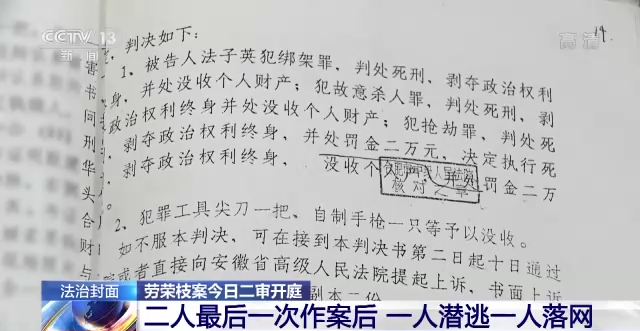 CCTV 13
新闻
高清
19
，判决如下：
1、被告人法子英犯绑架罪，判处死刑，剥夺政治权利
身，并处没收个人财产；犯故意杀人罪，判处死刑，剥
政治权利终身并处没收个人财产；犯抢劫罪，判处死
，剥夺政治权利终身，并处罚金二万元，决定执行死
，剥夺政治权利终身，没收个人财产，并处罚金二万
。
核对之章
2、犯罪工具尖刀一把、自制手枪一只等予以没收。
如不服本判决，可在接到本判决书第二日起十日通过
院或者直接向安徽省高级人民法院提起上诉，书面上诉
副本二份
害
书
同
刑
华
头
合
财
与
法治封面
劳荣枝案今日二审开庭
二人最后一次作案后 一人潜逃一人落网